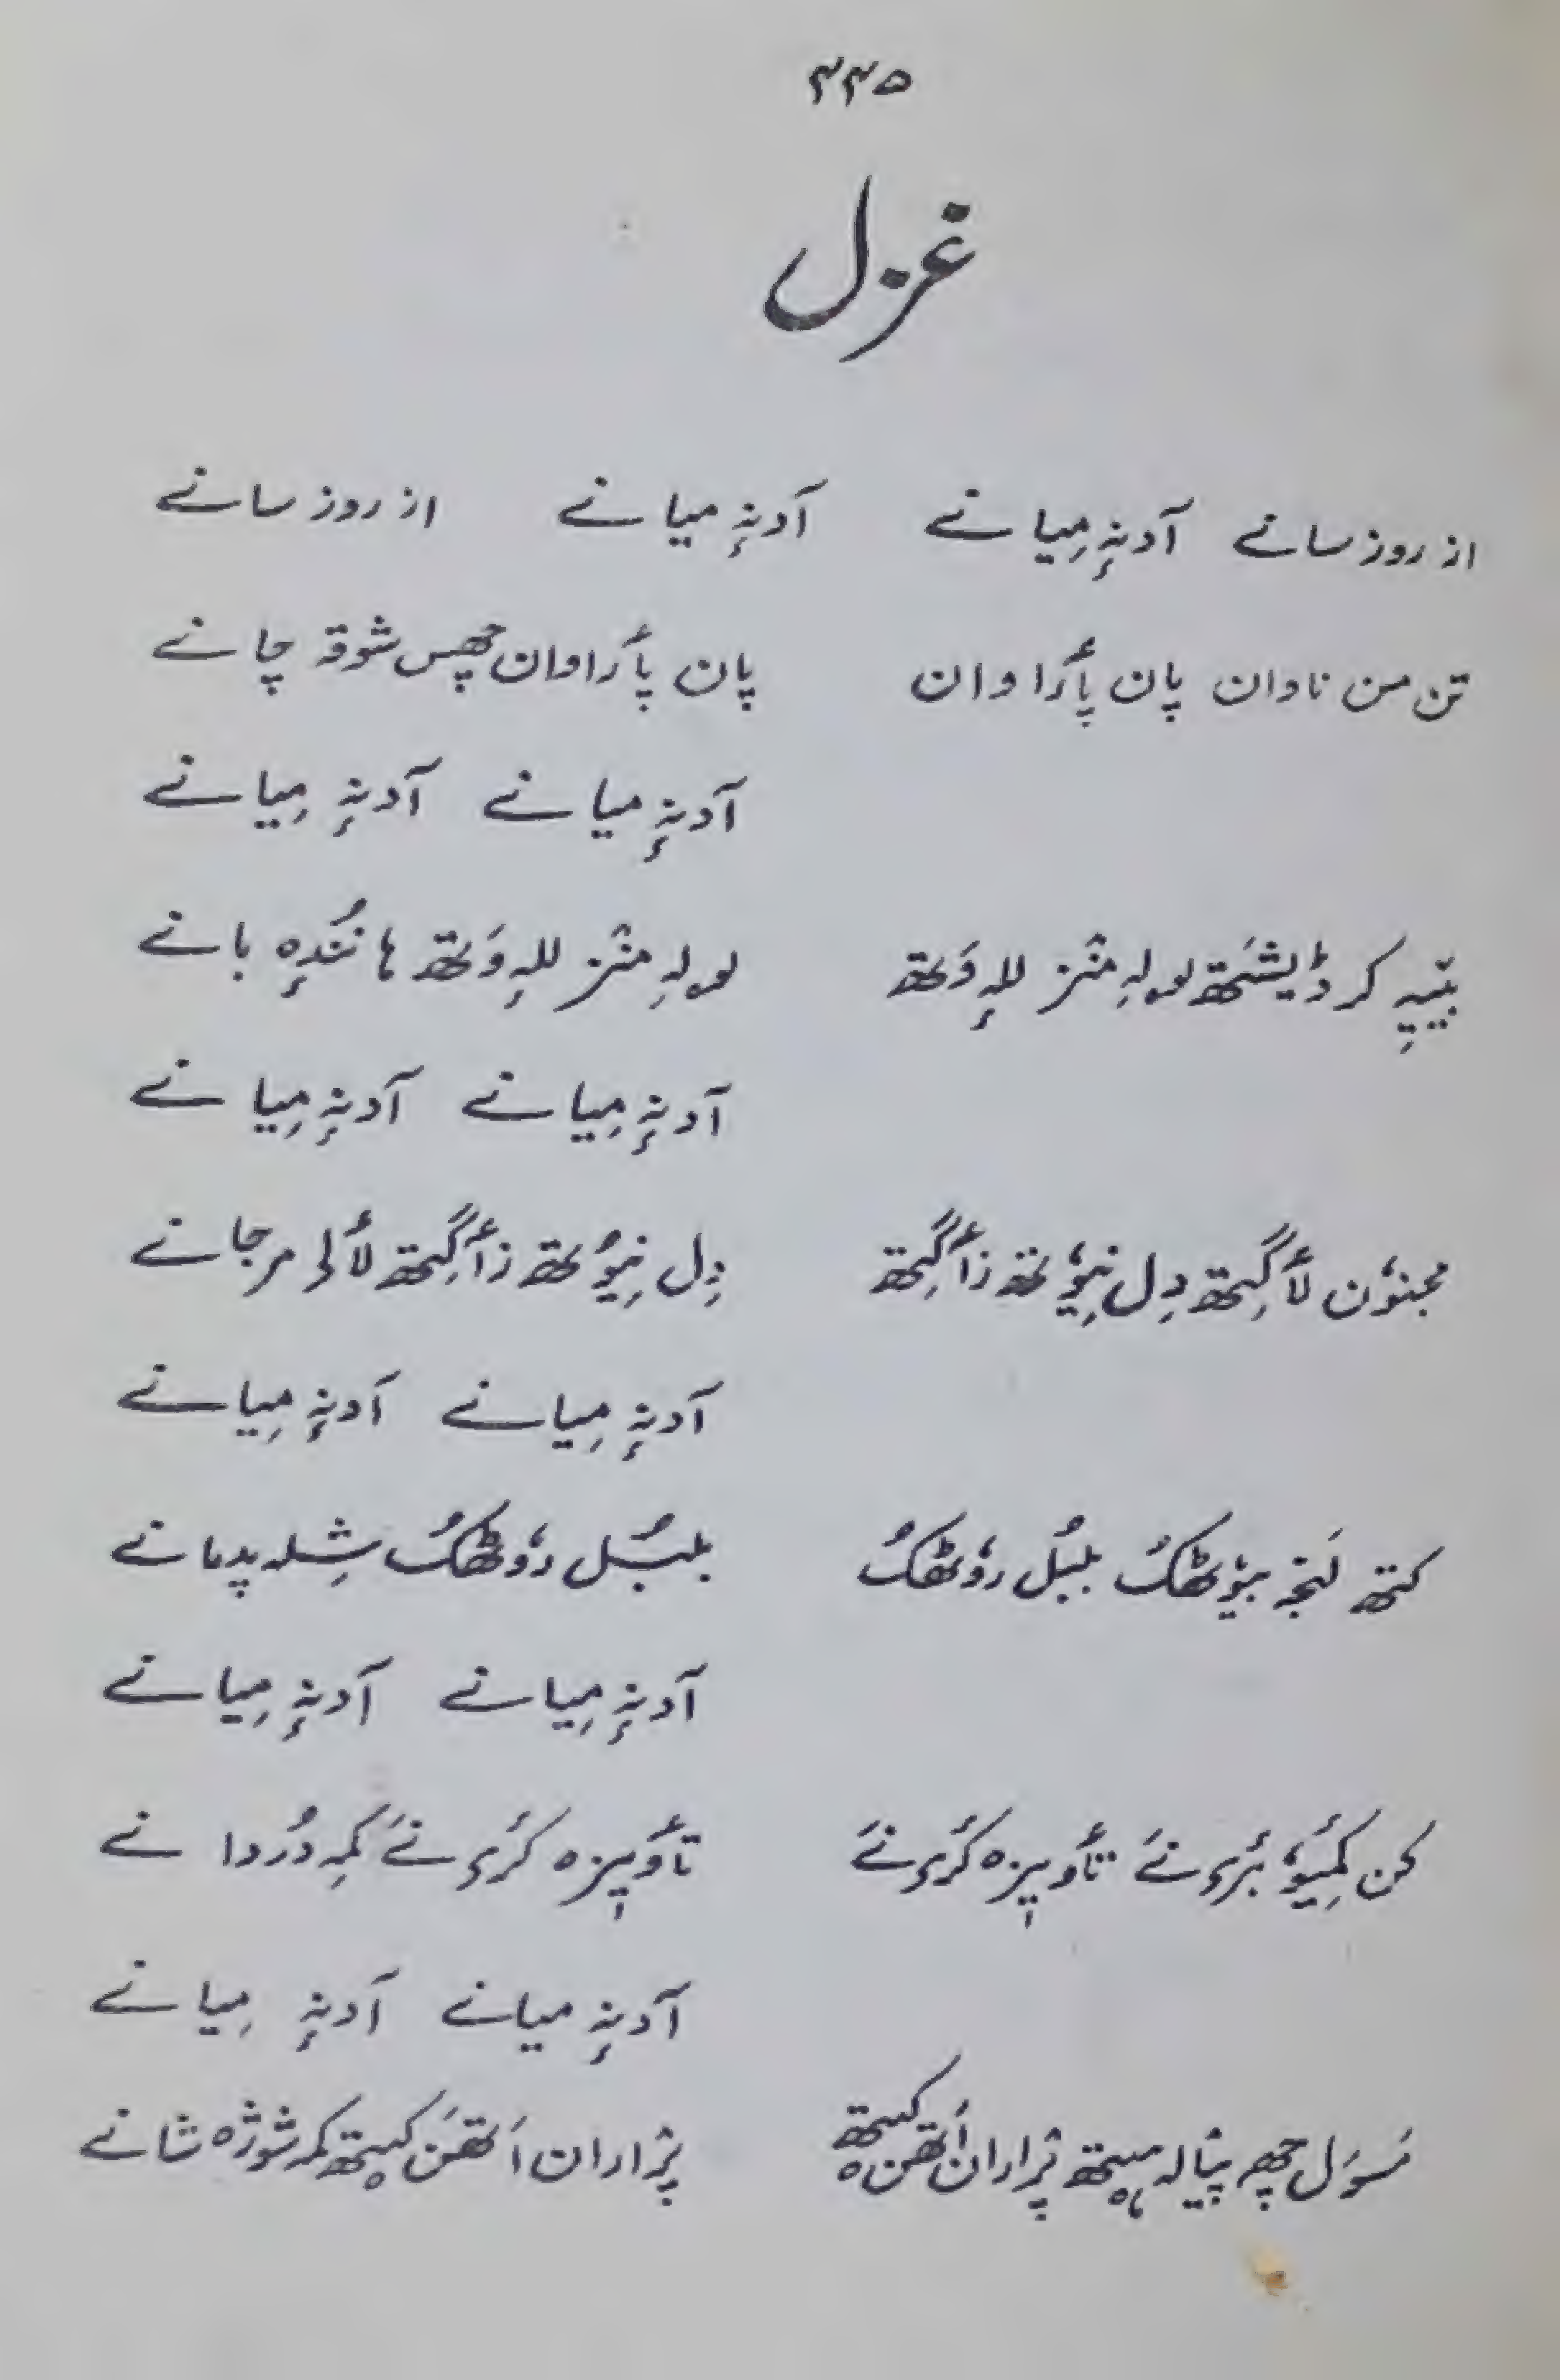 ۲۲۵
غزل
از روز سانے آدنہٕ مِیانے آدنہٕ میانے از روز سانے
تن من ناوان پان پأراوان پان پأراوان چھس شوقہ چانے
آدنہٕ میانے آدنہٕ مِیانے
بیٚیہِ کر ڈیشَتھ لولہِ منٛز للہٕ وَتھ لولہِ منٛز للہٕ وَتھ ہا نُندٕہ بانے
آدنہٕ مِیانے آدنہٕ مِیانے
مجنوٗن لأگِتھ دِل نِیوٗتھ زأگِتھ دِل نِیوُتھ زأگِتھ لألہ مرجانے
آدنہٕ مِیانے آدنہٕ مِیانے
کتھ لَنجہ بیوٗٹھکُ بلبُل روٗٹھکُ بلبُل روٗٹھکُ شِلہ پدمانے
آدنہٕ مِیانے آدنہٕ مِیانے
کن کٔمِیوٗ بٔرۍ نےَ تأویزہ کٔرۍ نےَ تأویزہ کٔرۍ نےَ کمہِ دُردانے
آدنہٕ میانے آدنہٕ مِیانے
رَسوٗل چھہ پیٛالہ ہیٚتھ پرٛاران اَتھن کیٚتھ پرٛاران اَتھَن کیٚتھ کمہ شوٗژہ شانے